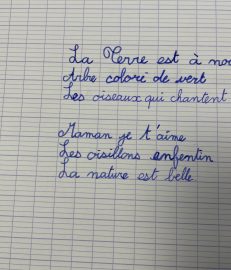 La Terre est à
Arbe coloré de vert
Les oiseaux qui chantent
Maman je t'aime
Les oisillons enfentin
La nature est belle